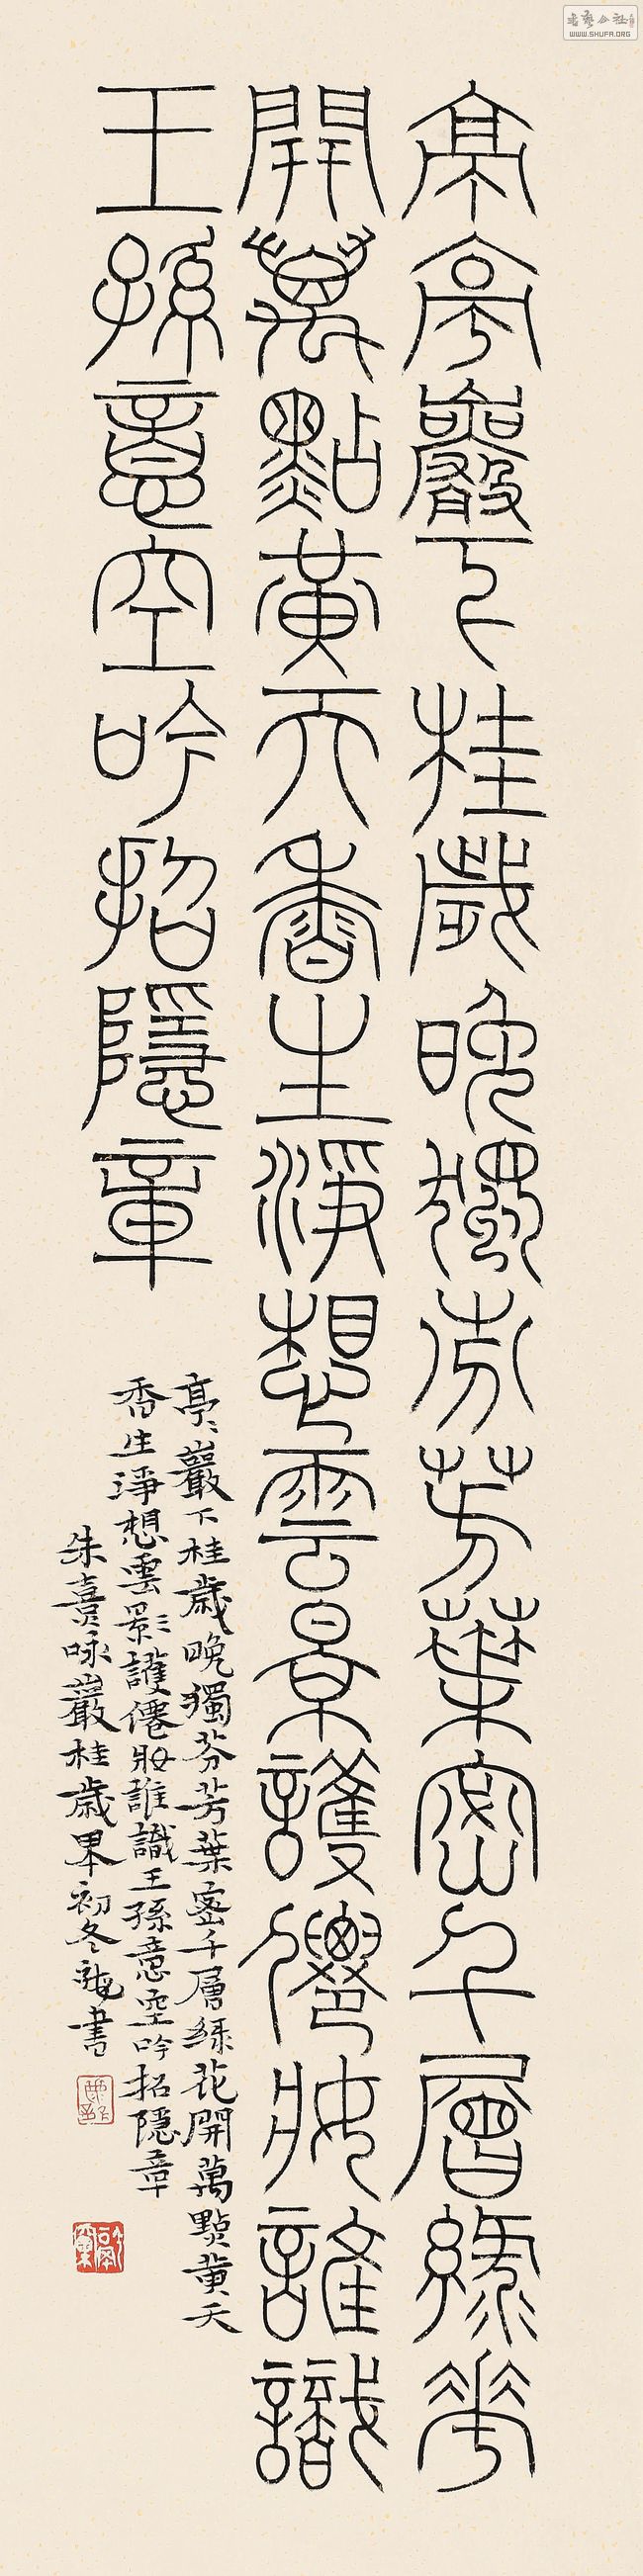 亭亭巖下桂歲晚獨芬芳葉密千層綠花
開萬點黃天香生淨想雲景護僊妝誰識
王孫意空吟招隱章
亭〻巖下桂歲晚獨芬芳葉密千層綠花開萬點黃天
香生淨想雲影護僊妝誰識王孫意空吟招隱章
朱熹咏巖桂歲畢初冬 書
书艺公社
WWW.SHUFA.ORG